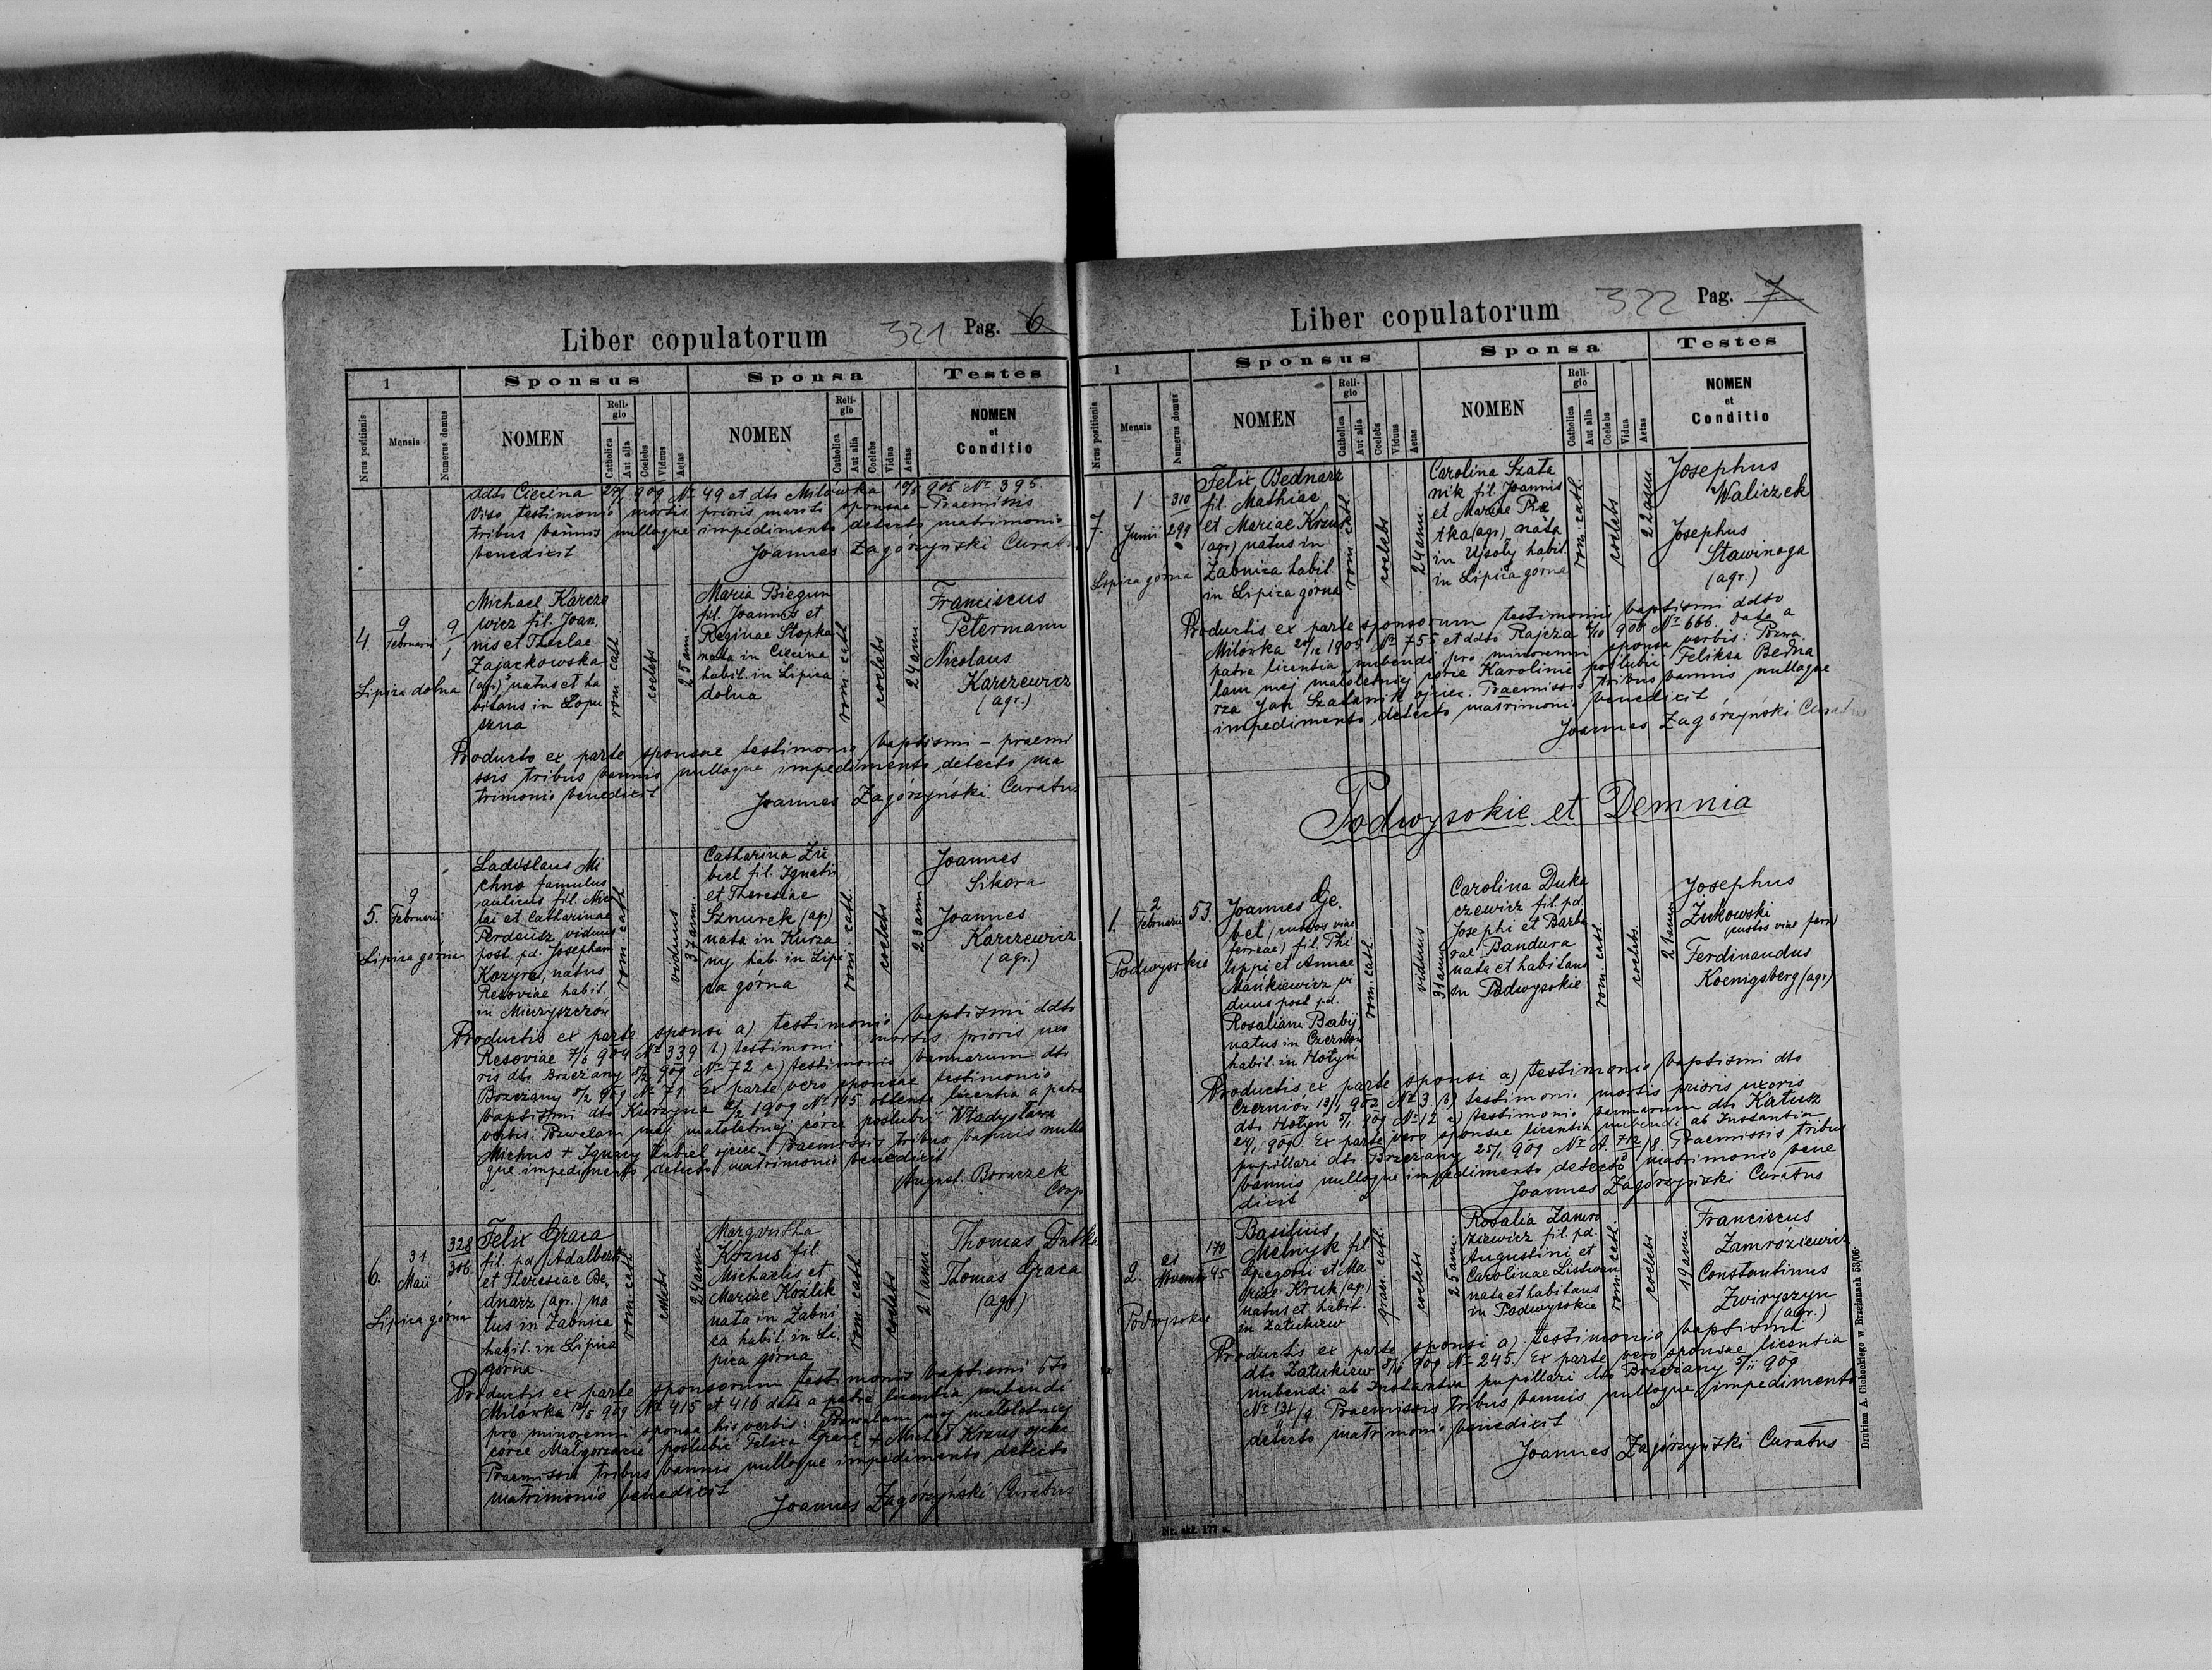 Liber copulatorum 321 Pag. 6
1 Sponsus Sponsa Testes
Nrus positionis Mensis Numerus domus NOMEN Religio Catholica Aut alia Coelebs Viduus Aetas NOMEN Religio Catholica Aut alia Coelebs Vidua Aetas NOMEN et Conditio
ddto Ciecina 27/1 909 Nr 49 et dto Milówka 10/5 905 Nr 395
Viso testimonio mortis prioris mariti sponsae – Praemissis
tribus bannis nullogue impedimento detecto matrimonio
benedixit Joannes Zagórzyński Curatus
4. 9 Februarii 9/1
Lipica dolna
Michael Karcze
wicz fil. Joan
nis et Theclae
Zajackowska
(agr.) natus et ha
bitans in Łopu
szna
rom. cath.
coelebs
25 ann.
Maria Biegun
fil. Joannis et
Reginae Stopka
nata in Ciecina
habit. in Lipica
dolna
rom. cath.
coelebs
24 ann.
Franciscus
Petermann
Nicolaus
Karczewicz
(agr.)
Producto ex parte sponsae testimonio baptismi – praemi
ssis tribus bannis nulloque impedimento detecto ma
trimonio benedixit
Joannes Zagórzyński Curatus
5. 9 Februarii
Lipica górna
Ladislaus Mi
chno famulus
aulicus fil. Nico
lai et Catharinae
Perdeusz, viduus
post pd. Josepham
Kozyra, natus
Resoviae habit.
in Mieczyszczów
rom. cath.
viduus
37 ann.
Catharina Zü
biel fil. Ignatii
et Theresiae
Sznurek (agr.)
nata in Kurza
ny, hab. in Lipi
ca górna
rom. cath.
coelebs
23 ann.
Joannes
Sikora
Joannes
Karczewicz
(agr.)
Productis ex parte sponsi a) testimonio baptismi ddto
Resoviae 7/6 904 Nr 339 b) testimonio mortis prioris uxo
ris dto Brzezany 8/2 909 Nr 72 c) testimonio bannorum dto
Brzezany 8/2 909 Nr 71. Ex parte vero sponsae testimonio
baptismi dto Kurzyna 2/2 1909 Nr 115 obtenta licentia a patre
verbis: Pozwalam mej małoletniej córce poslubić Władysława
Michno + Ignacy Zubiel ojciec. Praemissis tribus bannis nullo
que impedimento detecto matrimonio benedixit
August. Boraczek
Coop.
6. 31 Maii 328 306
Lipica górna
Felix Graca
fil. pd. Adalberti
et Theresiae Be
dnarz (agr.) na
tus in Żabnica
habit. in Lipica
górna
rom. cath.
coelebs
24 ann.
Margaritha
Kozus fil.
Michaelis et
Mariae Kozlik
nata in Żabni
ca habit. in Li
pica górna
rom. cath.
coelebs
21 ann.
Thomas Dutka
Thomas Graca
(agr.)
Productis ex parte sponsorum testimoniis baptismi dto
Milówka 12/5 909 Nr 415 et 416 data a patre licentia nubendi
pro minorenni sponsa his verbis: Pozwalam mej małoletniej
córce Małgorzacie poslubić Felixa Gracę + Michał Kraus ojciec
Praemissis tribus bannis nulloque impedimento detecto
matrimonio benedixit
Joannes Zagórzyński Curatus
Liber copulatorum 322 Pag. 7
1 Sponsus Sponsa Testes
Nrus positionis Mensis Numerus domus NOMEN Religio Catholica Aut alia Coelebs Viduus Aetas NOMEN Religio Catholica Aut alia Coelebs Vidua Aetas NOMEN et Conditio
7. 1 Junii 310 299
Lipica górna
Felix Bednarz
fil. Mathiae
et Mariae Kraus
(agr.) natus in
Żabnica habit.
in Lipica górna
rom. cath.
coelebs
24 ann.
Carolina Szata
nik fil. Joannis
et Mariae Pie
tka (agr.) nata
in Ujsoły habit.
in Lipica górna
rom. cath.
coelebs
22 ann.
Josephus
Waliczek
Josephus
Stawinoga
(agr.)
Productis ex parte sponsorum testimoniis baptismi ddto
Milówka 20/12 1905 Nr 755 et ddto Rajcza 2/10 908 Nr 666. Data a
patre licentia nubendi pro minorenni sponsa verbis: Pozwa
lam mej małoletniej córce Karolinie poslubić Feliksa Bedna
rza Jan Szatanik ojciec. Praemissis tribus bannis nulloque
impedimento detecto matrimonio benedixit
Joannes Zagórzyński Curatus
Podwysokie et Demnia
1. 2 Februarii 53.
Podwysokie
Joannes Ge
bel (custos viae
ferreae) fil. Phi
lippi et Annae
Mańkiewicz vi
duus post pd.
Rosaliam Babij
natus in Czerniów
habit. in Hotyń
rom. cath.
viduus
31 ann.
Carolina Duka
czewicz fil. pd.
Josephi et Barba
rae Bandura
nata et habitans
in Podwysokie
rom. cath.
coelebs
21 ann.
Josephus
Zukowski
(custos viae ferr.)
Ferdinandus
Koenigsberg (agr.)
Productis ex parte sponsi a) testimonio baptismi dto
Czerniów 13/1 902 Nr 3 b) testimonio mortis prioris uxoris
dto Hotyń 5/1 909 Nr 12 c) testimonio bannorum dto Kałusz
24/1 909. Ex parte vero sponsae licentia nubendi ab Instantia
pupillari dto Brzezany 25/1 909 Nr A. 712/8. Praemissis tribus
bannis nulloque impedimento detecto matrimonio bene
dixit Joannes Zagórzyński Curatus
2. 21 Novembr. 170 45
Podwysokie
Basilius
Melnyk fil.
Gregorii et Ma
riae Kruk (agr.)
natus et habit.
in Załukiew
graec. cath.
coelebs
25 ann.
Rosalia Zamro
ziewicz fil. pd.
Augustini et
Carolinae Listwan
nata et habitans
in Podwysokie
rom. cath.
coelebs
19 ann.
Franciscus
Zamroziewicz
Constantinus
Zwiryszyn
(agr.)
Productis ex parte sponsi a) testimonio baptismi
dto Załukiew 8/11 909 Nr 245. Ex parte vero sponsae licentia
nubendi ab Instantia pupillari dto Brzezany 5/11 909
Nr 131/9. Praemissis tribus bannis nulloque impedimento
detecto matrimonio benedixit
Joannes Zagórzyński Curatus
Nr. skł. 177 a.
Drukiem A. Cichockiego w Brzeżanach 53/06.